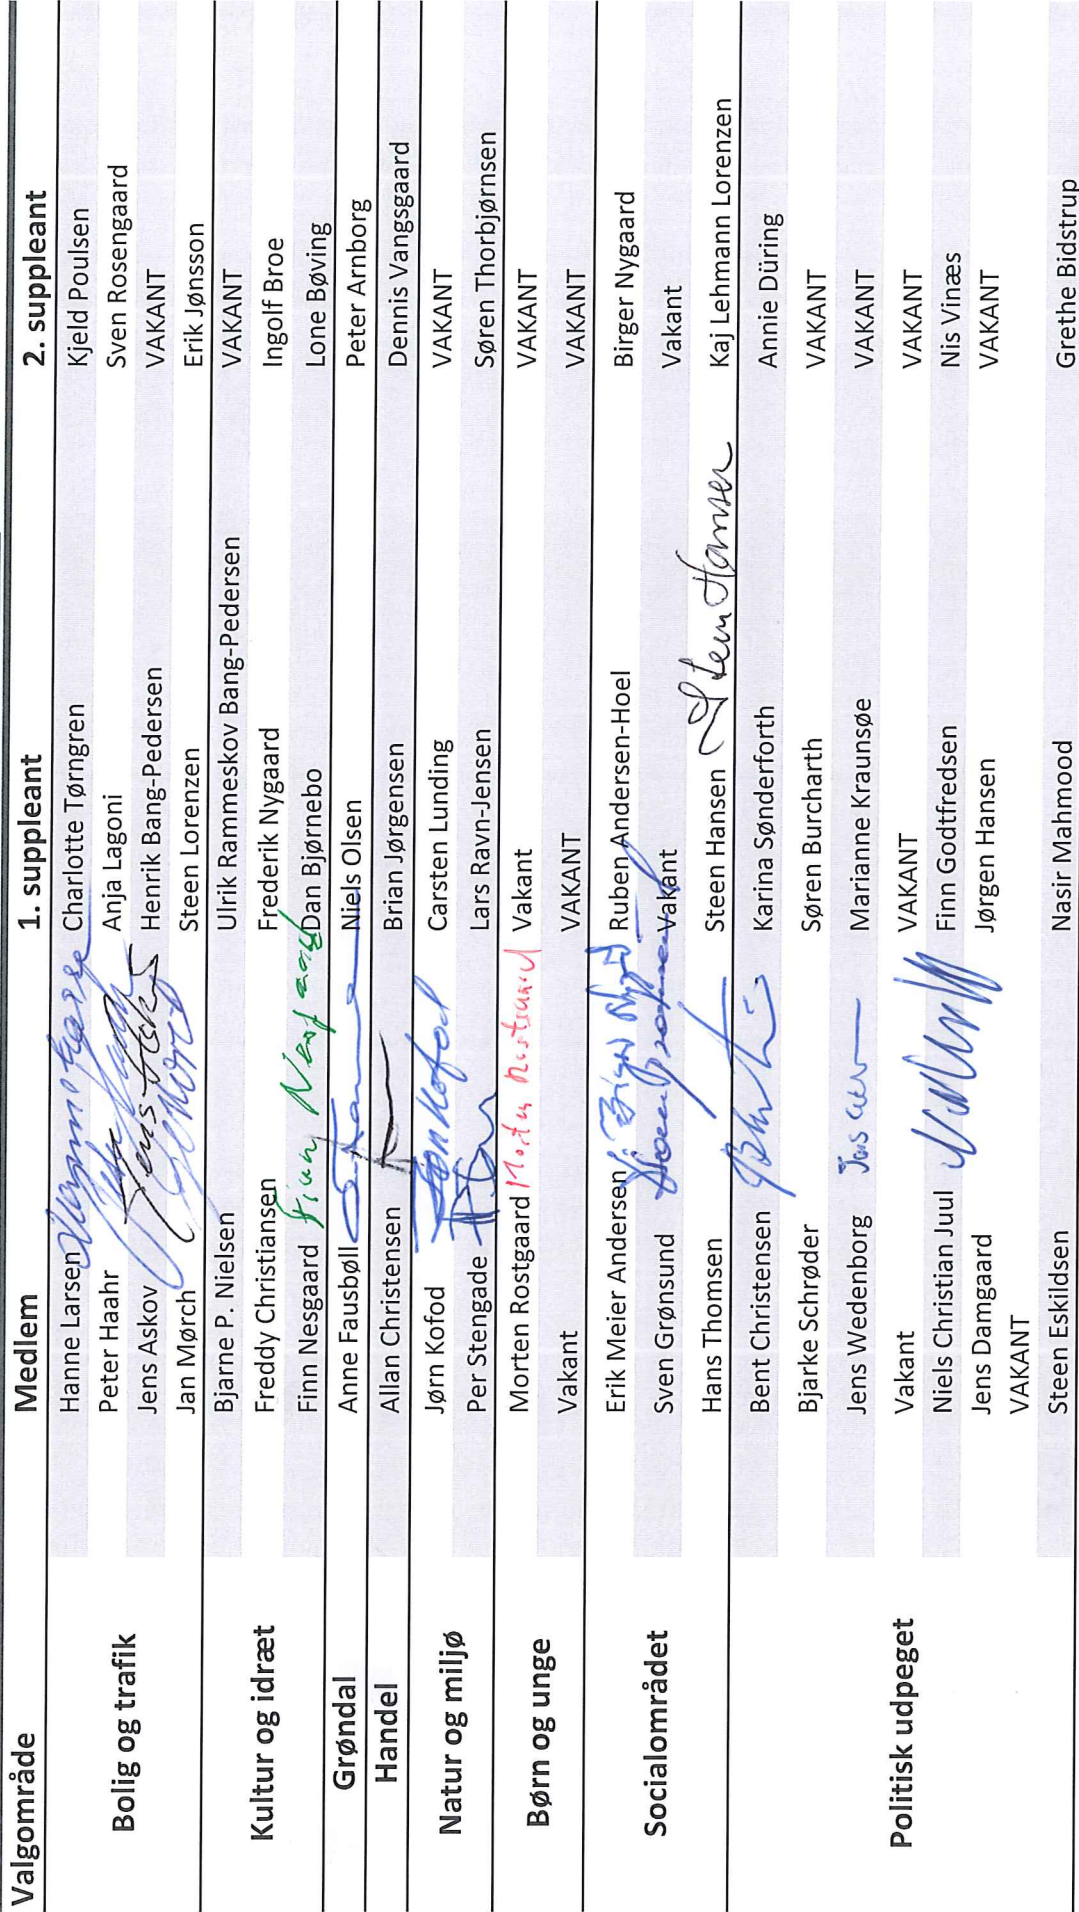 Valgområde Medlem 1. suppleant 2. suppleant
Hanne Larsen Charlotte Tørngren Kjeld Poulsen
Peter Haahr Anja Lagoni Sven Rosengaard
Bolig og trafik
Jens Askov Jens Askov Henrik Bang-Pedersen VAKANT
Jan Mørch Steen Lorenzen Erik Jønsson
Bjarne P. Nielsen Ulrik Rammeskov Bang-Pedersen VAKANT
Kultur og idræt Freddy Christiansen Frederik Nygaard Ingolf Broe
Finn Nesgaard Finn Nesgaard Dan Bjørnebo Lone Bøving
Grøndal Anne Fausbøll Niels Olsen Peter Arnborg
Handel Allan Christensen Brian Jørgensen Dennis Vangsgaard
Natur og miljø
Jørn Kofod Jørn Kofod Carsten Lunding VAKANT
Per Stengade Lars Ravn-Jensen Søren Thorbjørnsen
Børn og unge
Morten Rostgaard Morten Rostgaard Vakant VAKANT
Vakant VAKANT VAKANT
Erik Meier Andersen Ruben Andersen-Hoel Birger Nygaard
Socialområdet Sven Grønsund Vakant Vakant
Hans Thomsen Steen Hansen Steen Hansen Kaj Lehmann Lorenzen
Bent Christensen Karina Sønderforth Annie Düring
Bjarke Schrøder Søren Burcharth VAKANT
Jens Wedenborg Marianne Kraunsøe VAKANT
Politisk udpeget Vakant VAKANT VAKANT
Niels Christian Juul Finn Godtfredsen Nis Vinæs
Jens Damgaard Jørgen Hansen VAKANT
VAKANT
Steen Eskildsen Nasir Mahmood Grethe Bidstrup